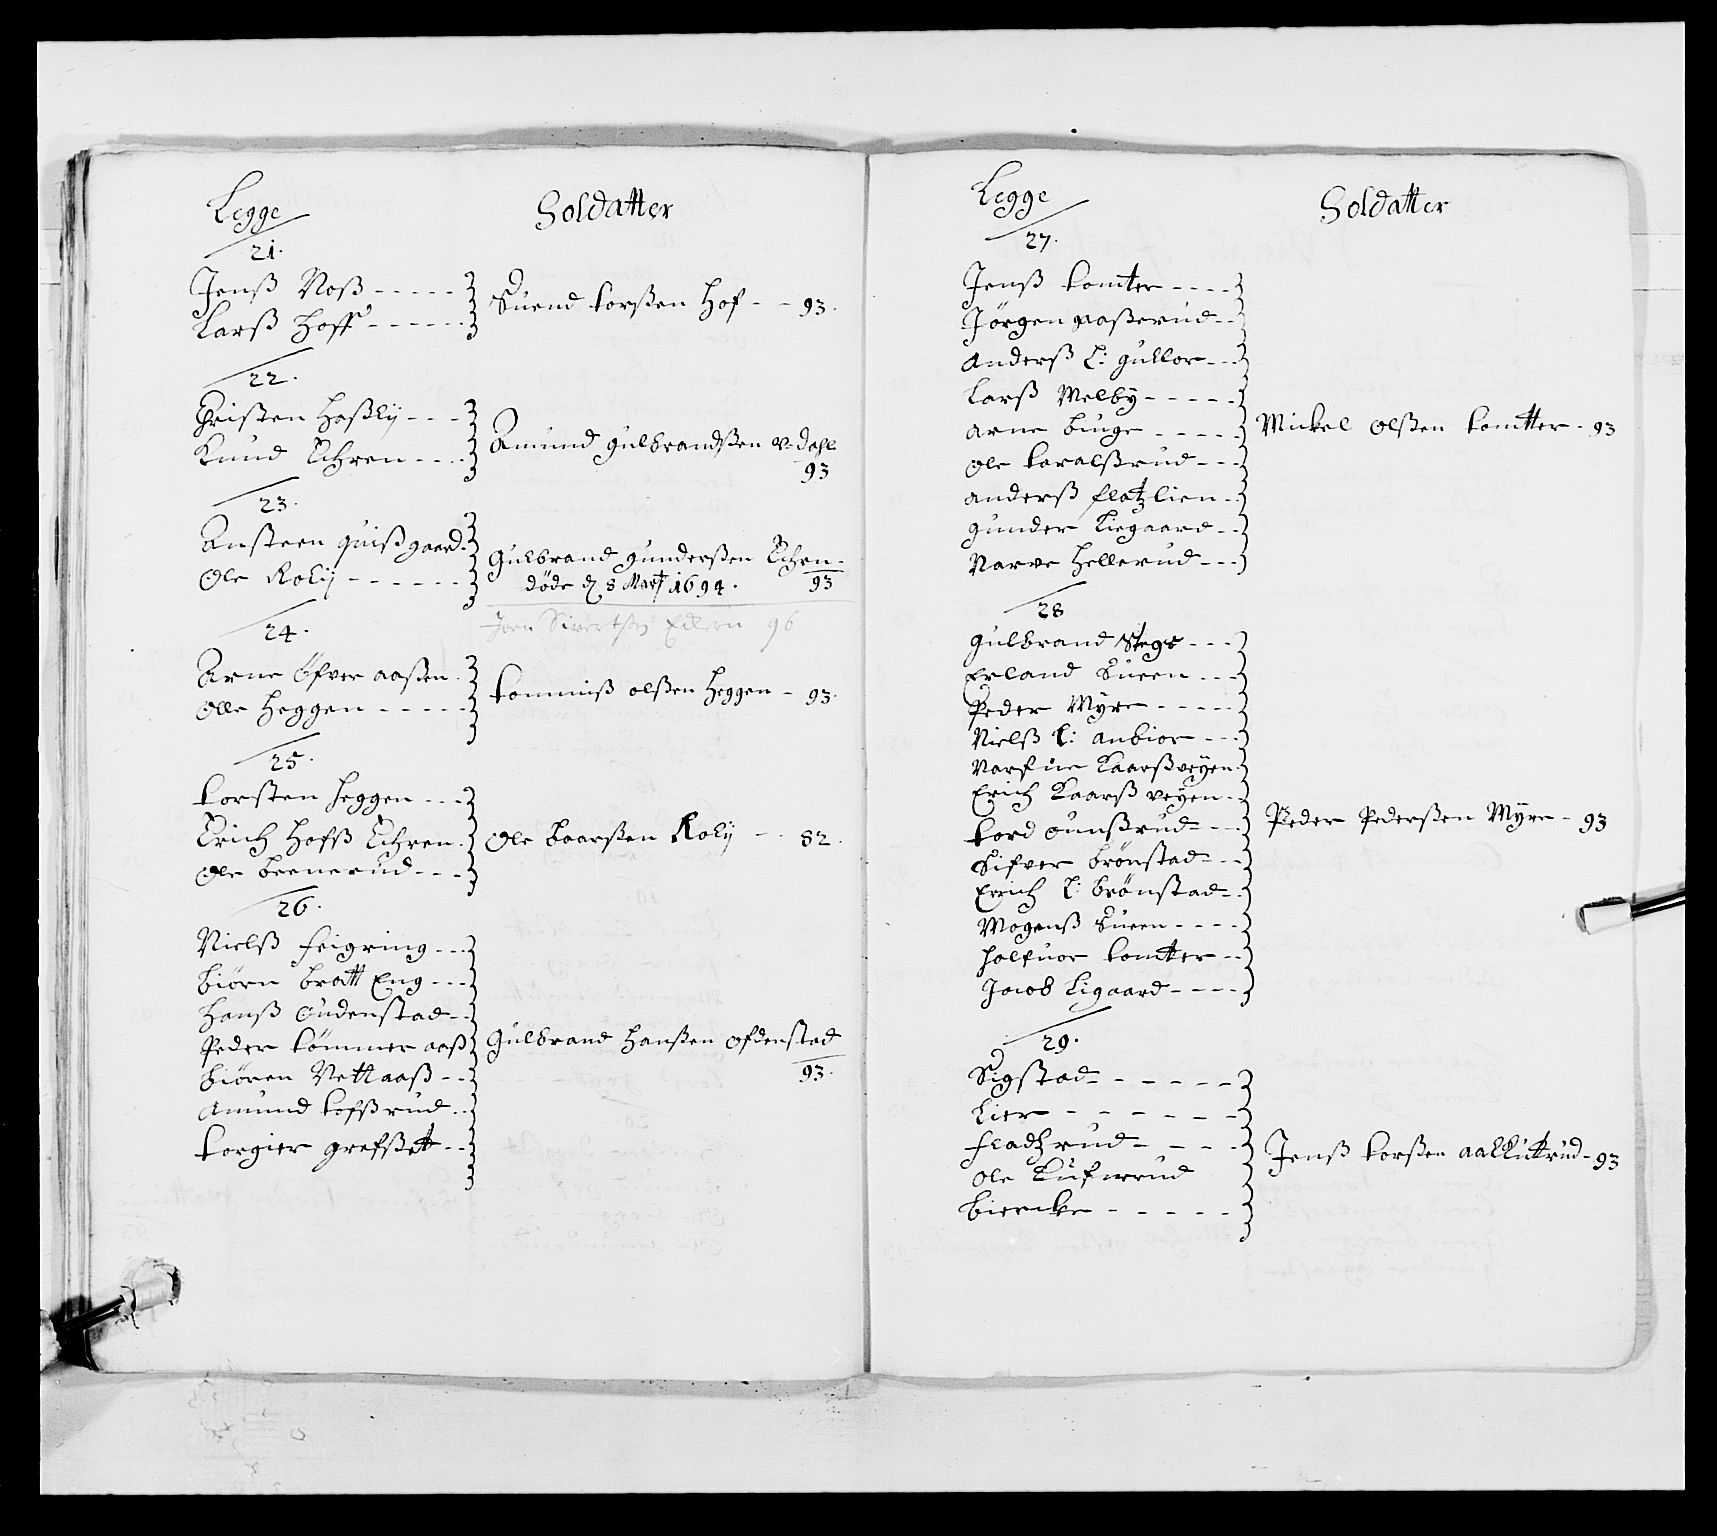 Legge Soldatter
21.
Jenß Noß
Larß Hoff
Suend Torßen Hof 93.
22.
Christen Haßlij
Knud Ehren
Amund Gulbrandßen v: Dahl
93
23.
Ansteen quißgaard
Ole Rolij
Gulbrand Gunderßen Ehren
døde d 8 Mart 1694. 93
Joen Sivertßen Eilern 96
24.
Arne Øfver aaßen
Olle Heggen
Tommiß Olßen Heggen 93.
25.
Torsten Heggen
Erich Hofß Ehren
Ole Beenerud
Ole Baarßen Rolij 82.
26.
Nielß Feigring
Biørn Bratt Eng
Hanß Oudenstad
Peder Tømmer aaß
Biøren Nettaaß
Amund Tofßrud
Torgier Grefßett
Gulbrand Hanßen Ofdenstad
93.
Legge Soldatter
27.
Jenß Tomter
Jørgen paßerud
Anderß L: Gullor
Larß Melby
Arne Buige
Ole Toralßrud
Anderß Flatzlien
Gunder Liegaard
Narve Hellerud
Mickel Olßen Tomtter 93
28
Gulbrand Stege
Erland Sueen
Peder Myre
Nielß L: Anbior
Narfue Kaarßveyen
Erich Kaarß veyen
Tord Ounßrud
Sifver Brønstad
Erich L: Brønstad
Mogenß Sueen
Halfuor Tomtter
Jacob Ligaard
Peder Pederßen Myre 93
29.
Sigstad
Lier
Fladtzrud
Ole Lufverud
Biercke
Jenß Torßen Aalkuttrud 93